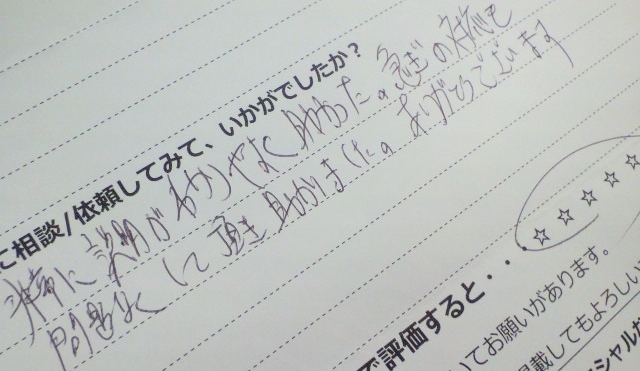 ご相談/依頼してみて、いかがでしたか？
非常に説明がわかりやすく助かった。急ぎの対応も
問題なくして頂き助かりました。ありがとうございます
で評価すると・・・☆☆☆☆☆
いてお願いがあります。
掲載してもよろしい
シャルが